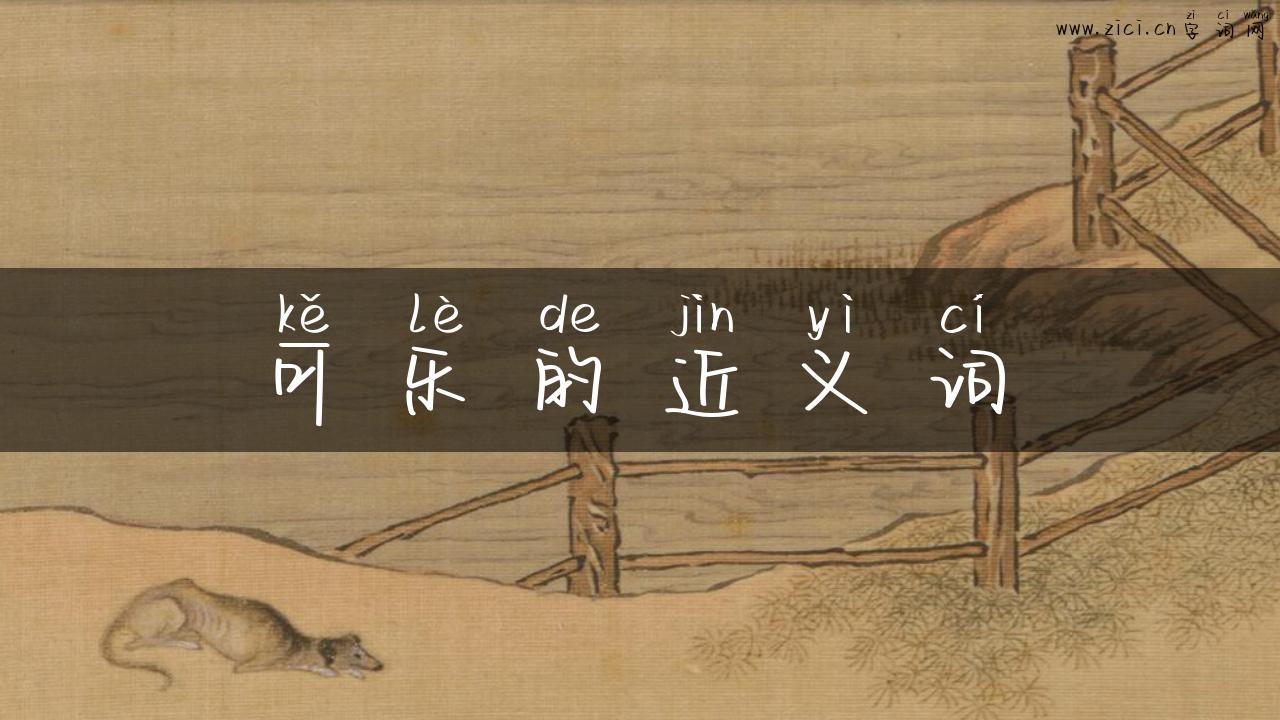 zì cí wǎng
www.zici.cn 字词网
kě lè de jìn yì cí
可乐的近义词